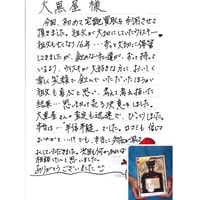 大黒屋 様
今回、初めて宅配買取を利用させて
頂きました。祖父が大切にしていたウイスキー
祖父も亡くなり16年…ずっと大切に保管
してきましたが、飲めなければ、ずっと持って
いるより、ウイスキーが大好きな方に、おいしく
楽しく笑顔で飲んでいただいたほうが
祖父も喜ぶと思い、考えに考え抜いた
結果… 思い切って売る決意をしました。
大黒屋さんの査定も迅速で、びっくりしました。
本当は…半信半疑でした。
本当に
お願い
していただきました。次回も何かあれば
相談したいと思いました。
ありがとうございました